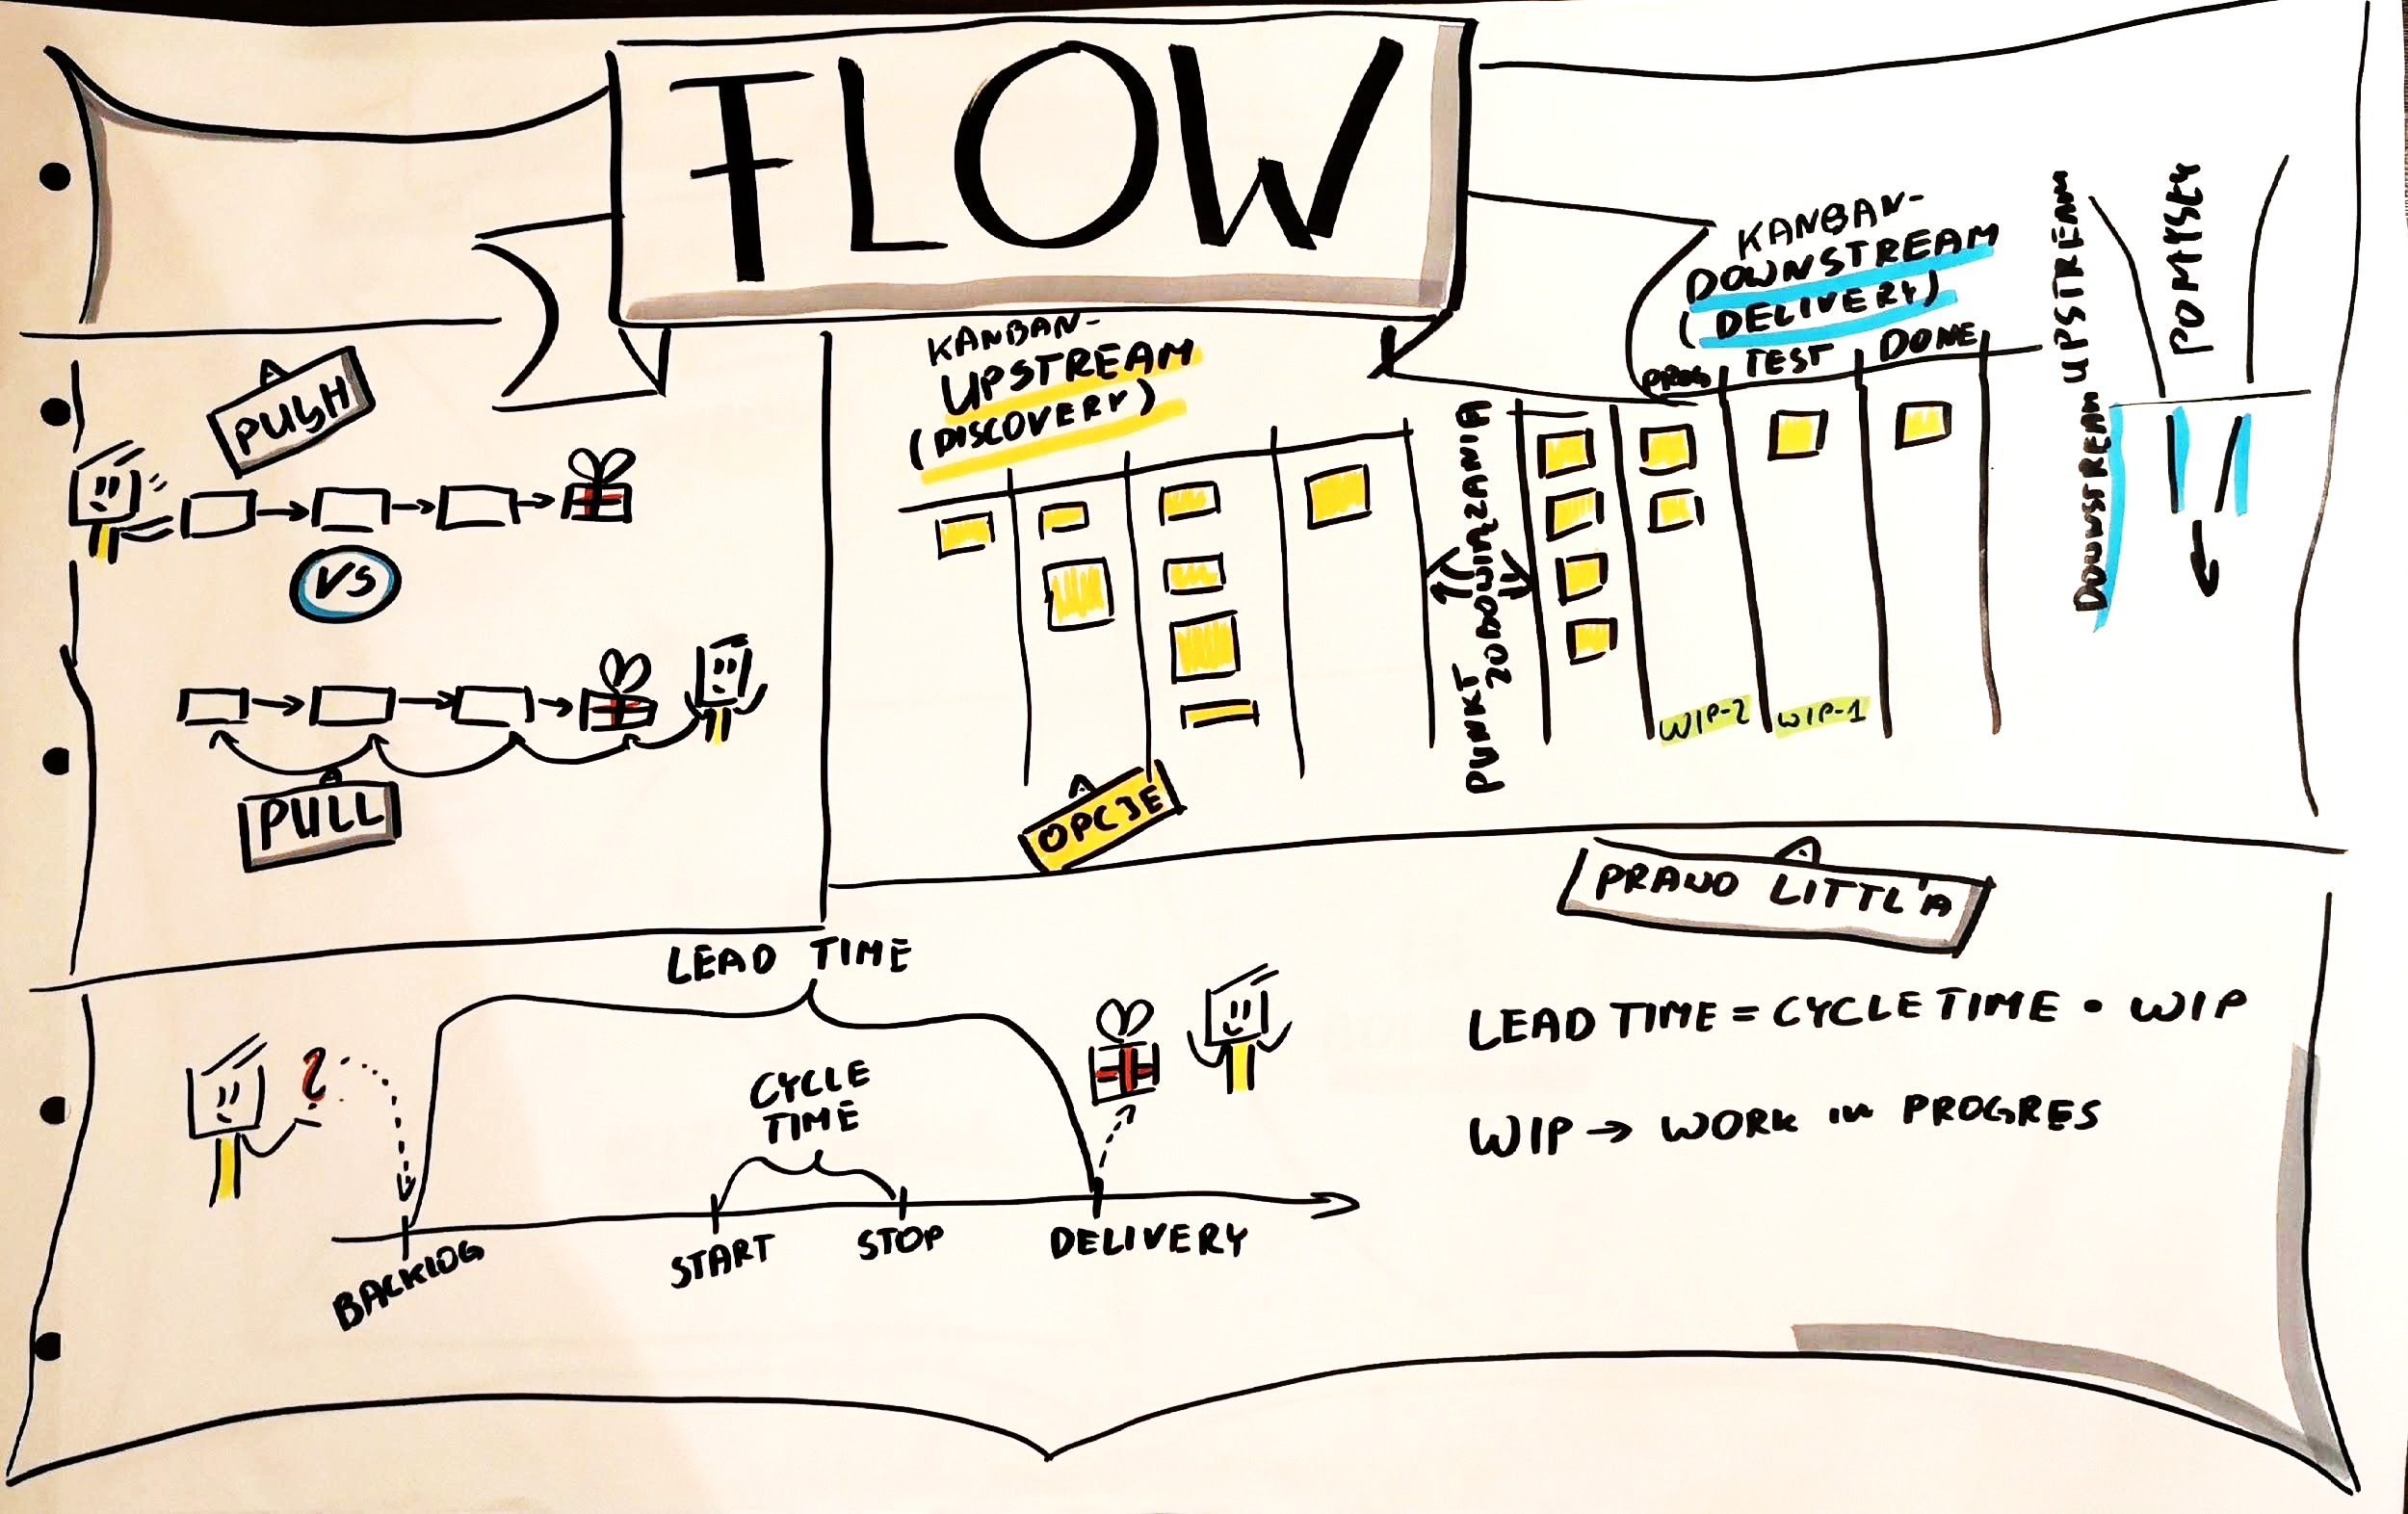 FLOW
PUSH
VS
PULL
KANBAN-
UPSTREAM
(DISCOVERY)
OPCJE
PUNKT
ZOBOWIĄZANIA
KANBAN-
DOWNSTREAM
(DELIVERY)
PROG
TEST
DONE
WIP-2
WIP-1
UPSTREAM
POMYSŁY
DOWNSTREAM
LEAD TIME
CYCLE
TIME
BACKLOG
START
STOP
DELIVERY
PRAWO LITTL'A
LEAD TIME = CYCLE TIME • WIP
WIP → WORK in PROGRES